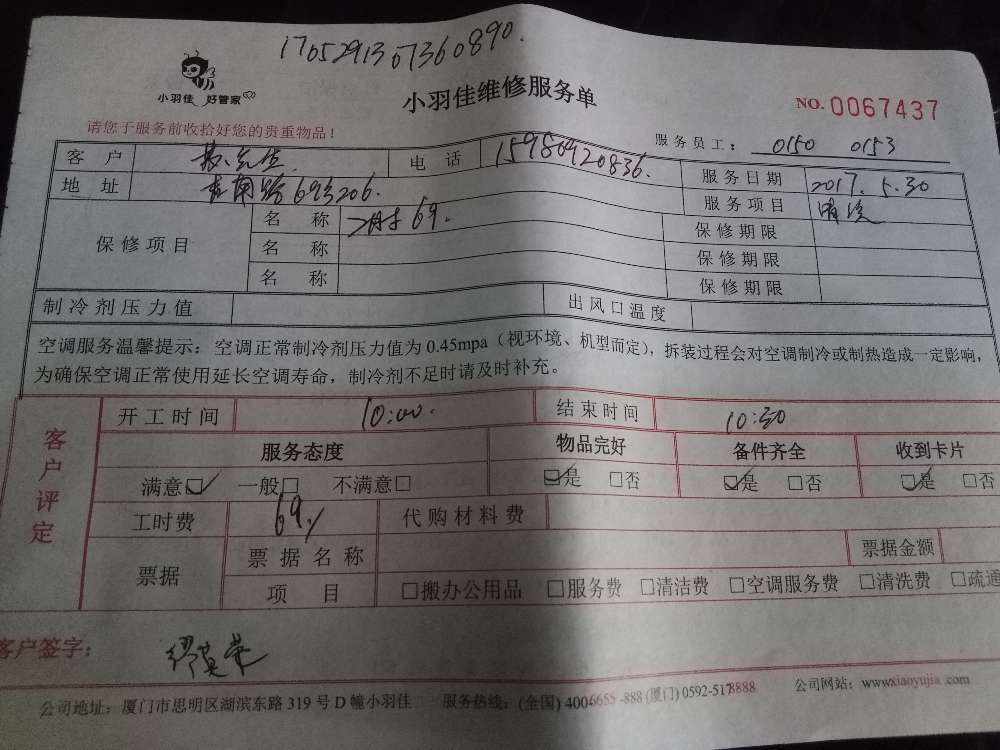 1705291307360890.
小羽佳 好管家
小羽佳维修服务单
NO. 0067437
请您于服务前收拾好您的贵重物品！
服务员工： 0150 0153
客 户 先生 电 话 15980920836.
服务日期 2017.5.30
地 址 南路693206.
服务项目 清洗
保修项目
名 称 69. 保修期限
名 称 保修期限
名 称 保修期限
制冷剂压力值 出风口温度
空调服务温馨提示：空调正常制冷剂压力值为0.45mpa（视环境、机型而定），拆装过程会对空调制冷或制热造成一定影响，
为确保空调正常使用延长空调寿命，制冷剂不足时请及时补充。
客户评定
开工时间 10:00. 结束时间 10:30
服务态度 物品完好 备件齐全 收到卡片
满意☑ 一般□ 不满意□ ☑是 □否 ☑是 □否 ☑是 □否
工时费 69 代购材料费
票据 票据名称 票据金额
项 目 □搬办公用品 □服务费 □清洁费 □空调服务费 □清洗费 □疏通
客户签字： 缪英荣
公司地址：厦门市思明区湖滨东路319号D幢小羽佳 服务热线：(全国) 4006655-888 (厦门) 0592-5178888 公司网站：www.xiaoyujia.com